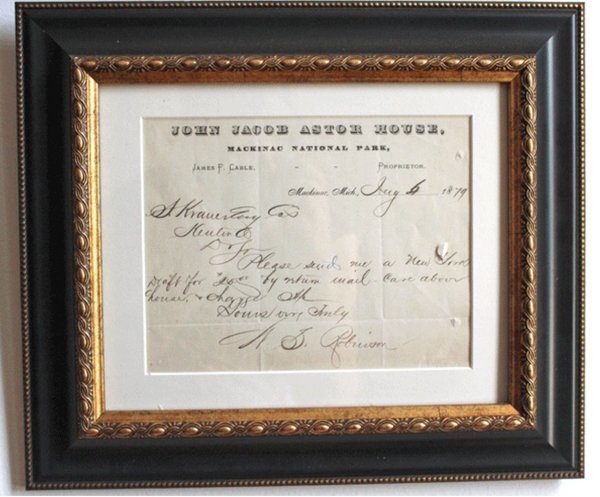 JOHN JACOB ASTOR HOUSE,
MACKINAC NATIONAL PARK,
JAMES F. CABLE, - - PROPRIETOR.
Mackinac, Mich, Aug 6 1879
Please send me a New York
Draft for by return mail - Care above
house, & charge
Yours very Truly
W S. Robinson